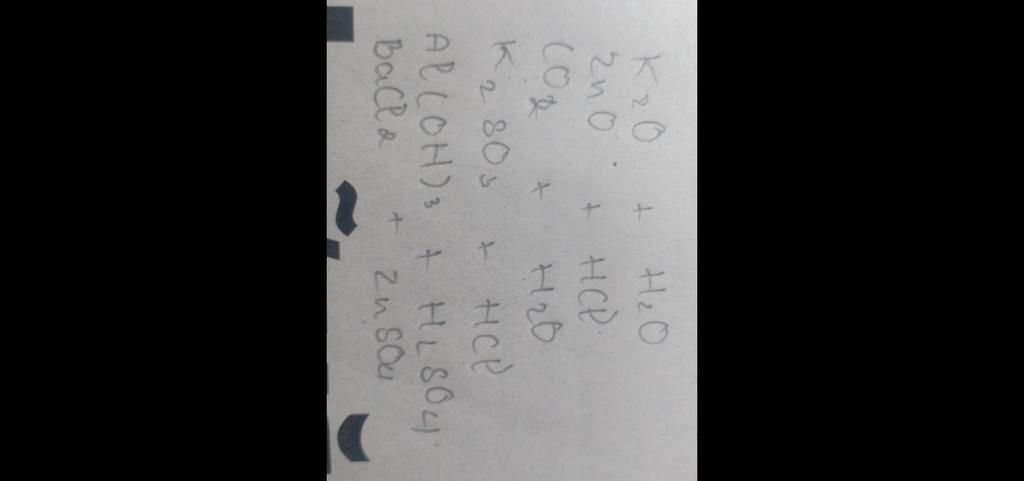 K₂O + H₂O
ZnO + HCl
CO₂ + H₂O
K₂SO₃ + HCl
Al(OH)₃ + H₂SO₄
BaCl₂ + ZnSO₄